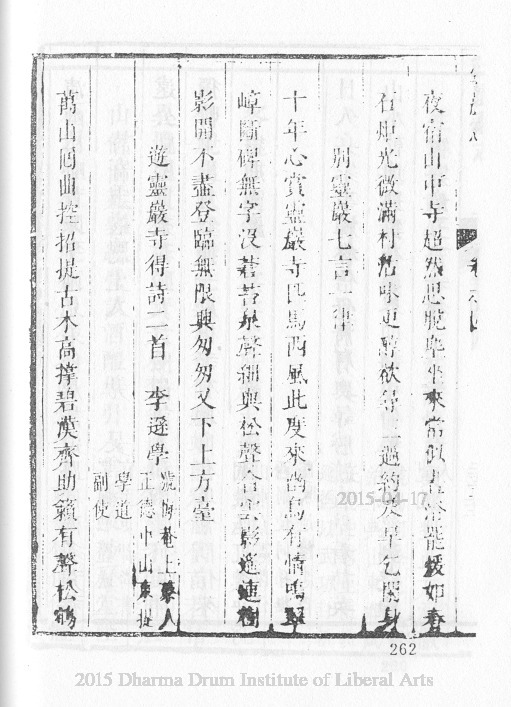 夜宿山中寺超然思脫卑坐來常似
在炬光微滿村沽味更醇欲尋一
別靈巖七言一律
十年心賞靈巖寺匹馬西風此度來幽鳥有情鳴翠
嶂斷碑無字沒蒼苔泉聲細與松聲合雲影遙連樹
影開不盡登臨無限興匆匆又下上方臺
遊靈巖寺得詩二首 李遜學 號悔菴上蔡人正德中山東提學道副使
萬山囘曲控招提古木高撐碧漢齊助籟有聲松鶴
2015-04-17
262
2015 Dharma Drum Institute of Liberal Arts